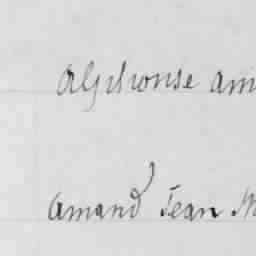 Alphonse am
Amand Jean M